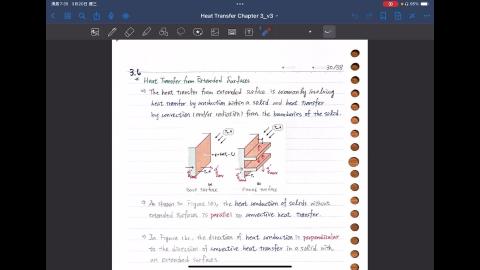 Heat Transfer Chapter 3_v3
95%
30/38
3.6
* Heat Transfer from Extended Surfaces
⇒ The heat transfer from extended surface is commonly involving
heat transfer by conduction within a solid and heat transfer
by convection (and/or radiation) from the boundaries of the solid.
(a)
(b)
Bare surface
Finned surface
⇒ As shown in Figure (a), the heat conduction of solids without
extended surfaces is parallel to convective heat transfer.
⇒ In Fig. (b), the direction of heat conduction is perpendicular
to the direction of convective heat transfer in a solid with
an extended surfaces.